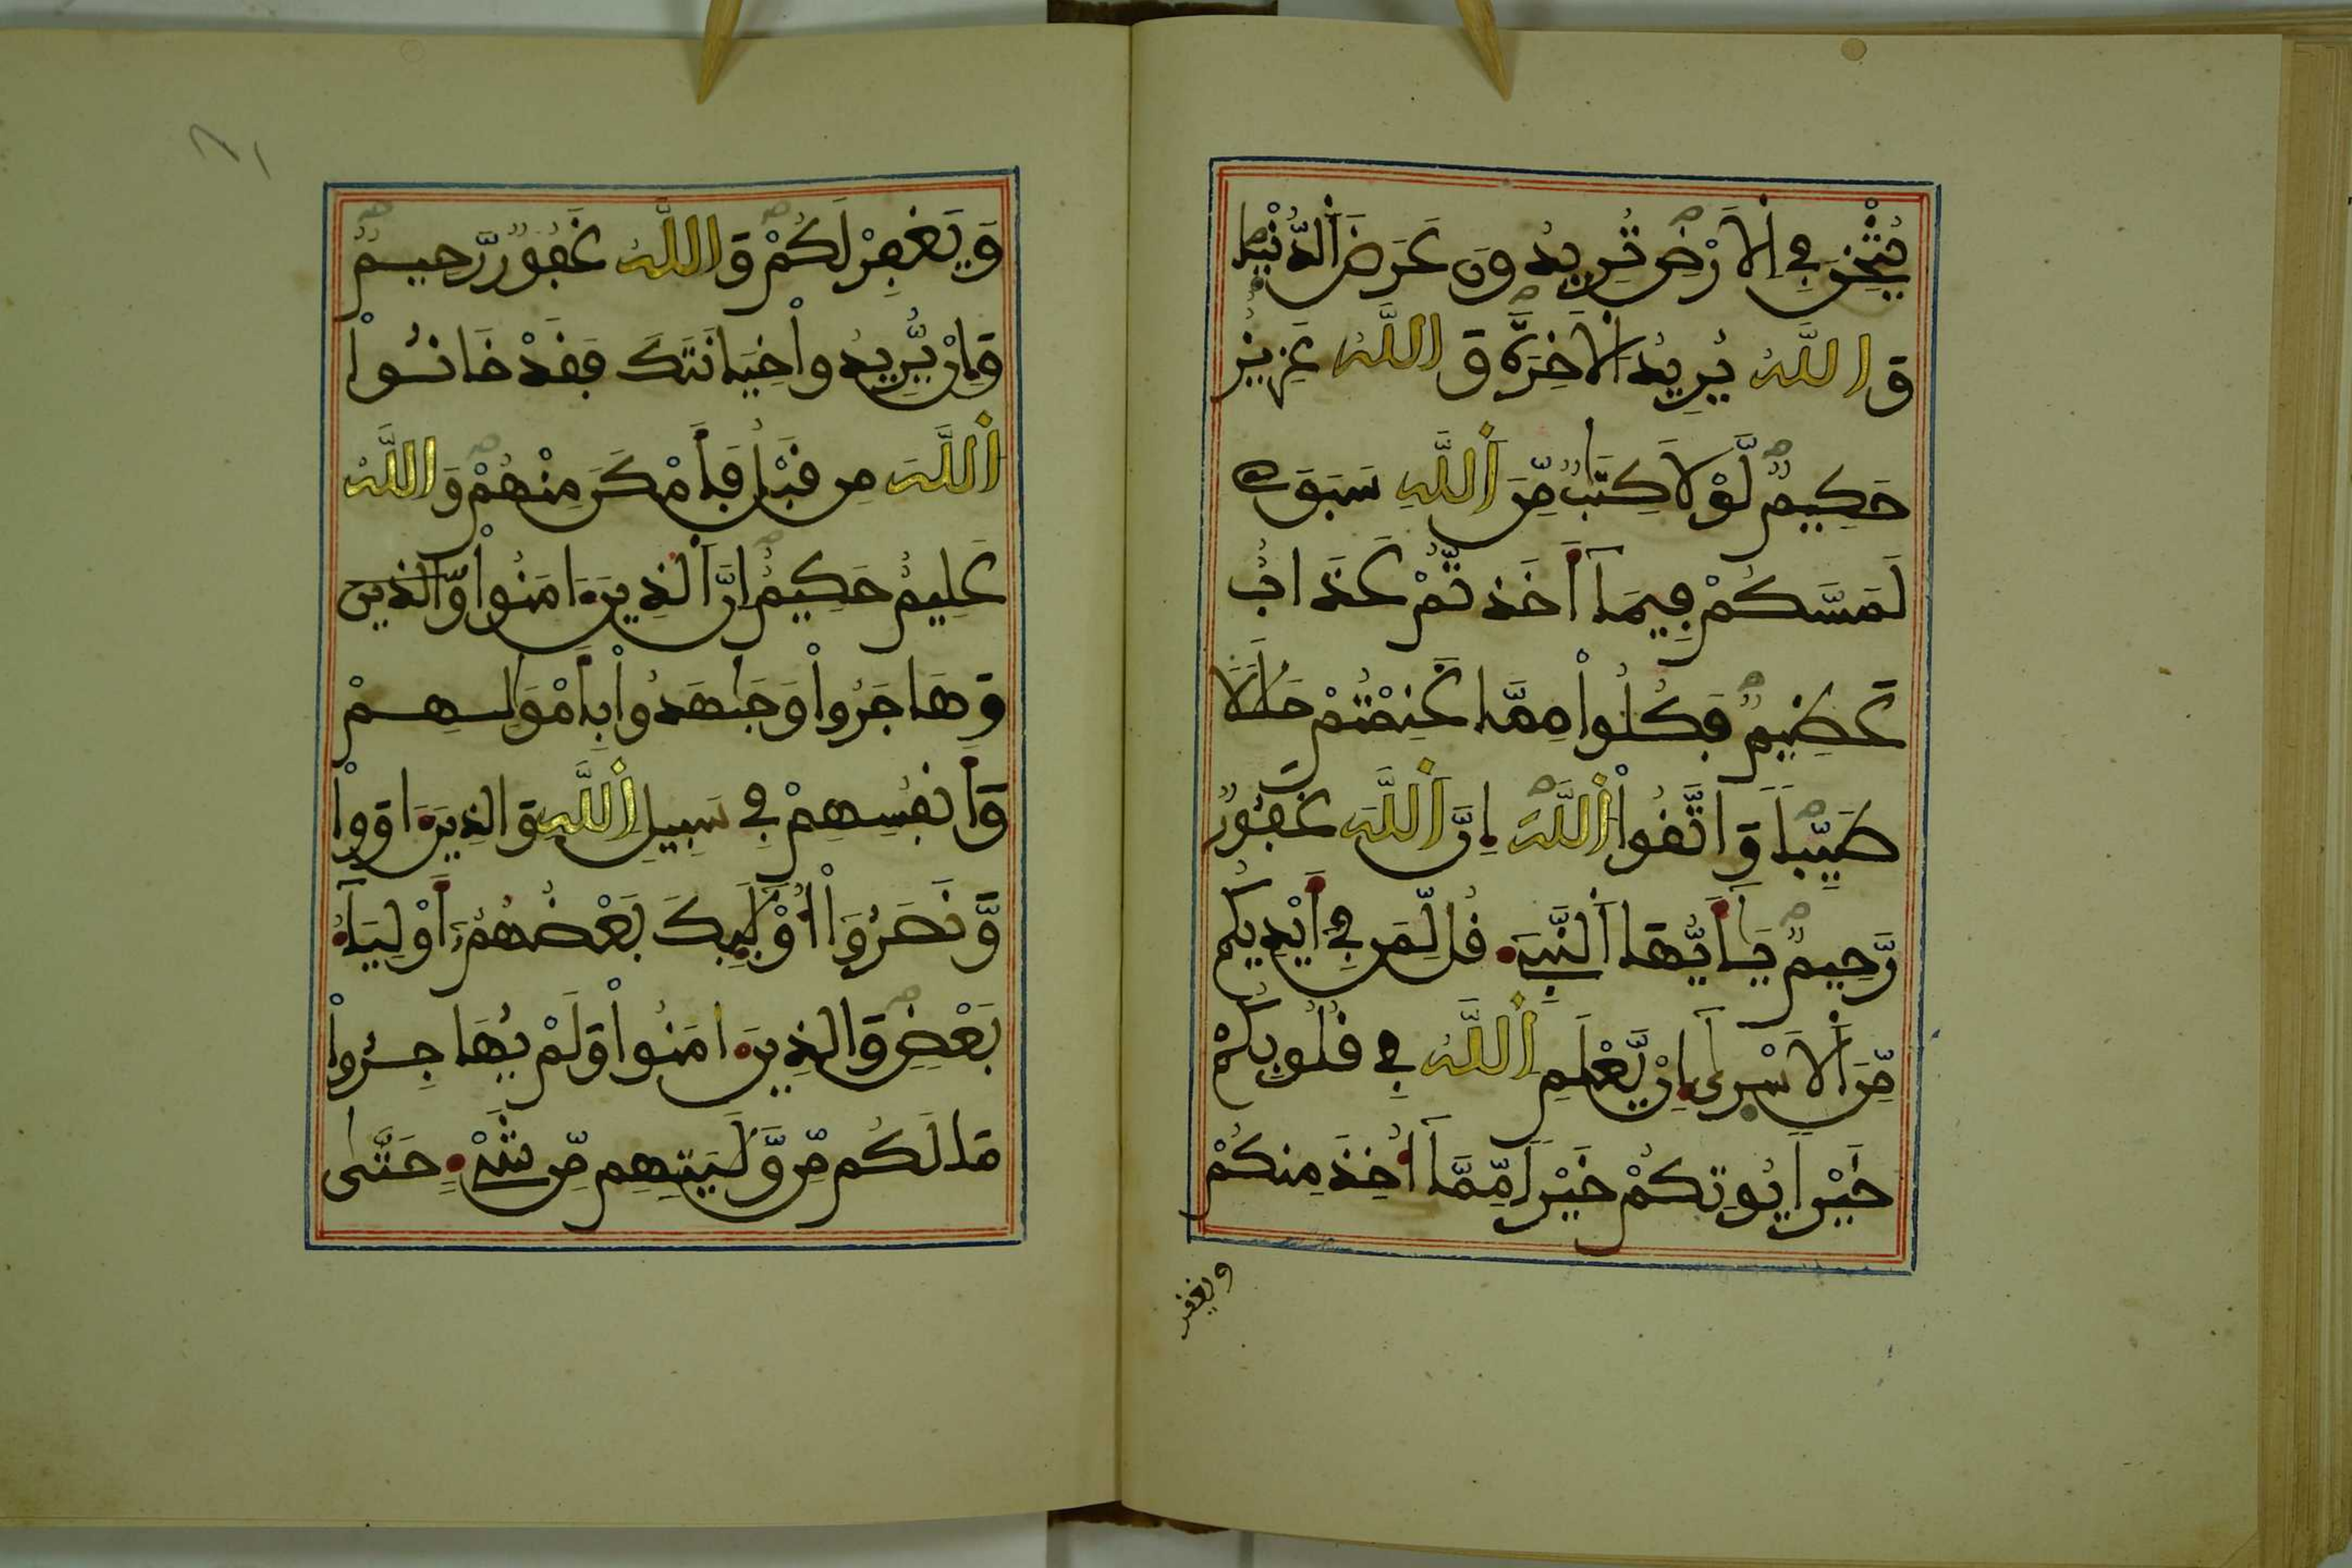 يُثْخِنَ فِي اَلَارْضِ تُرِيدُونَ عَرَضَ اَلدُّنْيَا
وَاللَّهُ يُرِيدُ اُلَاخِرَةَ وَاللَّهُ عَزِيزٌ
حَكِيمٌ لَّوْلَا كِتَٰبٌ مِّنَ اَللَّهِ سَبَقَ
لَمَسَّكُمْ فِيمَآ أَخَذتُّمْ عَذَابٌ
عَظِيمٌ فَكُلُواْ مِمَّا غَنِمْتُمْ حَلَٰلاً
طَيِّباً وَاتَّقُواْ اُللَّهَ إِنَّ اَللَّهَ غَفُورٌ
رَّحِيمٌ يَٰٓأَيُّهَا اَلنَّبِيٓءُ قُل لِّمَن فِي أَيْدِيكُم
مِّنَ اَلَاسْرَىٰٓ إِنْ يَّعْلَمِ اِللَّهُ فِي قُلُوبِكُمْ
خَيْراً يُوتِكُمْ خَيْراً مِّمَّآ أُخِذَ مِنكُمْ
ويغفر
وَيَغْفِرْ لَكُمْ وَاللَّهُ غَفُورٌ رَّحِيمٌ
وَإِنْ يُّرِيدُواْ خِيَانَتَكَ فَقَدْ خَانُواْ
اُللَّهَ مِن قَبْلُ فَأَمْكَنَ مِنْهُمْ وَاللَّهُ
عَلِيمٌ حَكِيمٌ اِنَّ اَلذِينَ ءَامَنُواْ وَالذِينَ
وَهَاجَرُواْ وَجَٰهَدُواْ بِأَمْوَٰلِهِمْ
وَأَنفُسِهِمْ فِي سَبِيلِ اِللَّهِ وَالذِينَ ءَاوَواْ
وَّنَصَرُوٓاْ أُوْلَٰٓئِكَ بَعْضُهُمُۥٓ أَوْلِيَآءُ
بَعْضٍ وَالذِينَ ءَامَنُواْ وَلَمْ يُهَاجِرُواْ
مَا لَكُم مِّن وَّلَٰيَتِهِم مِّن شَيْءٍ حَتَّىٰ